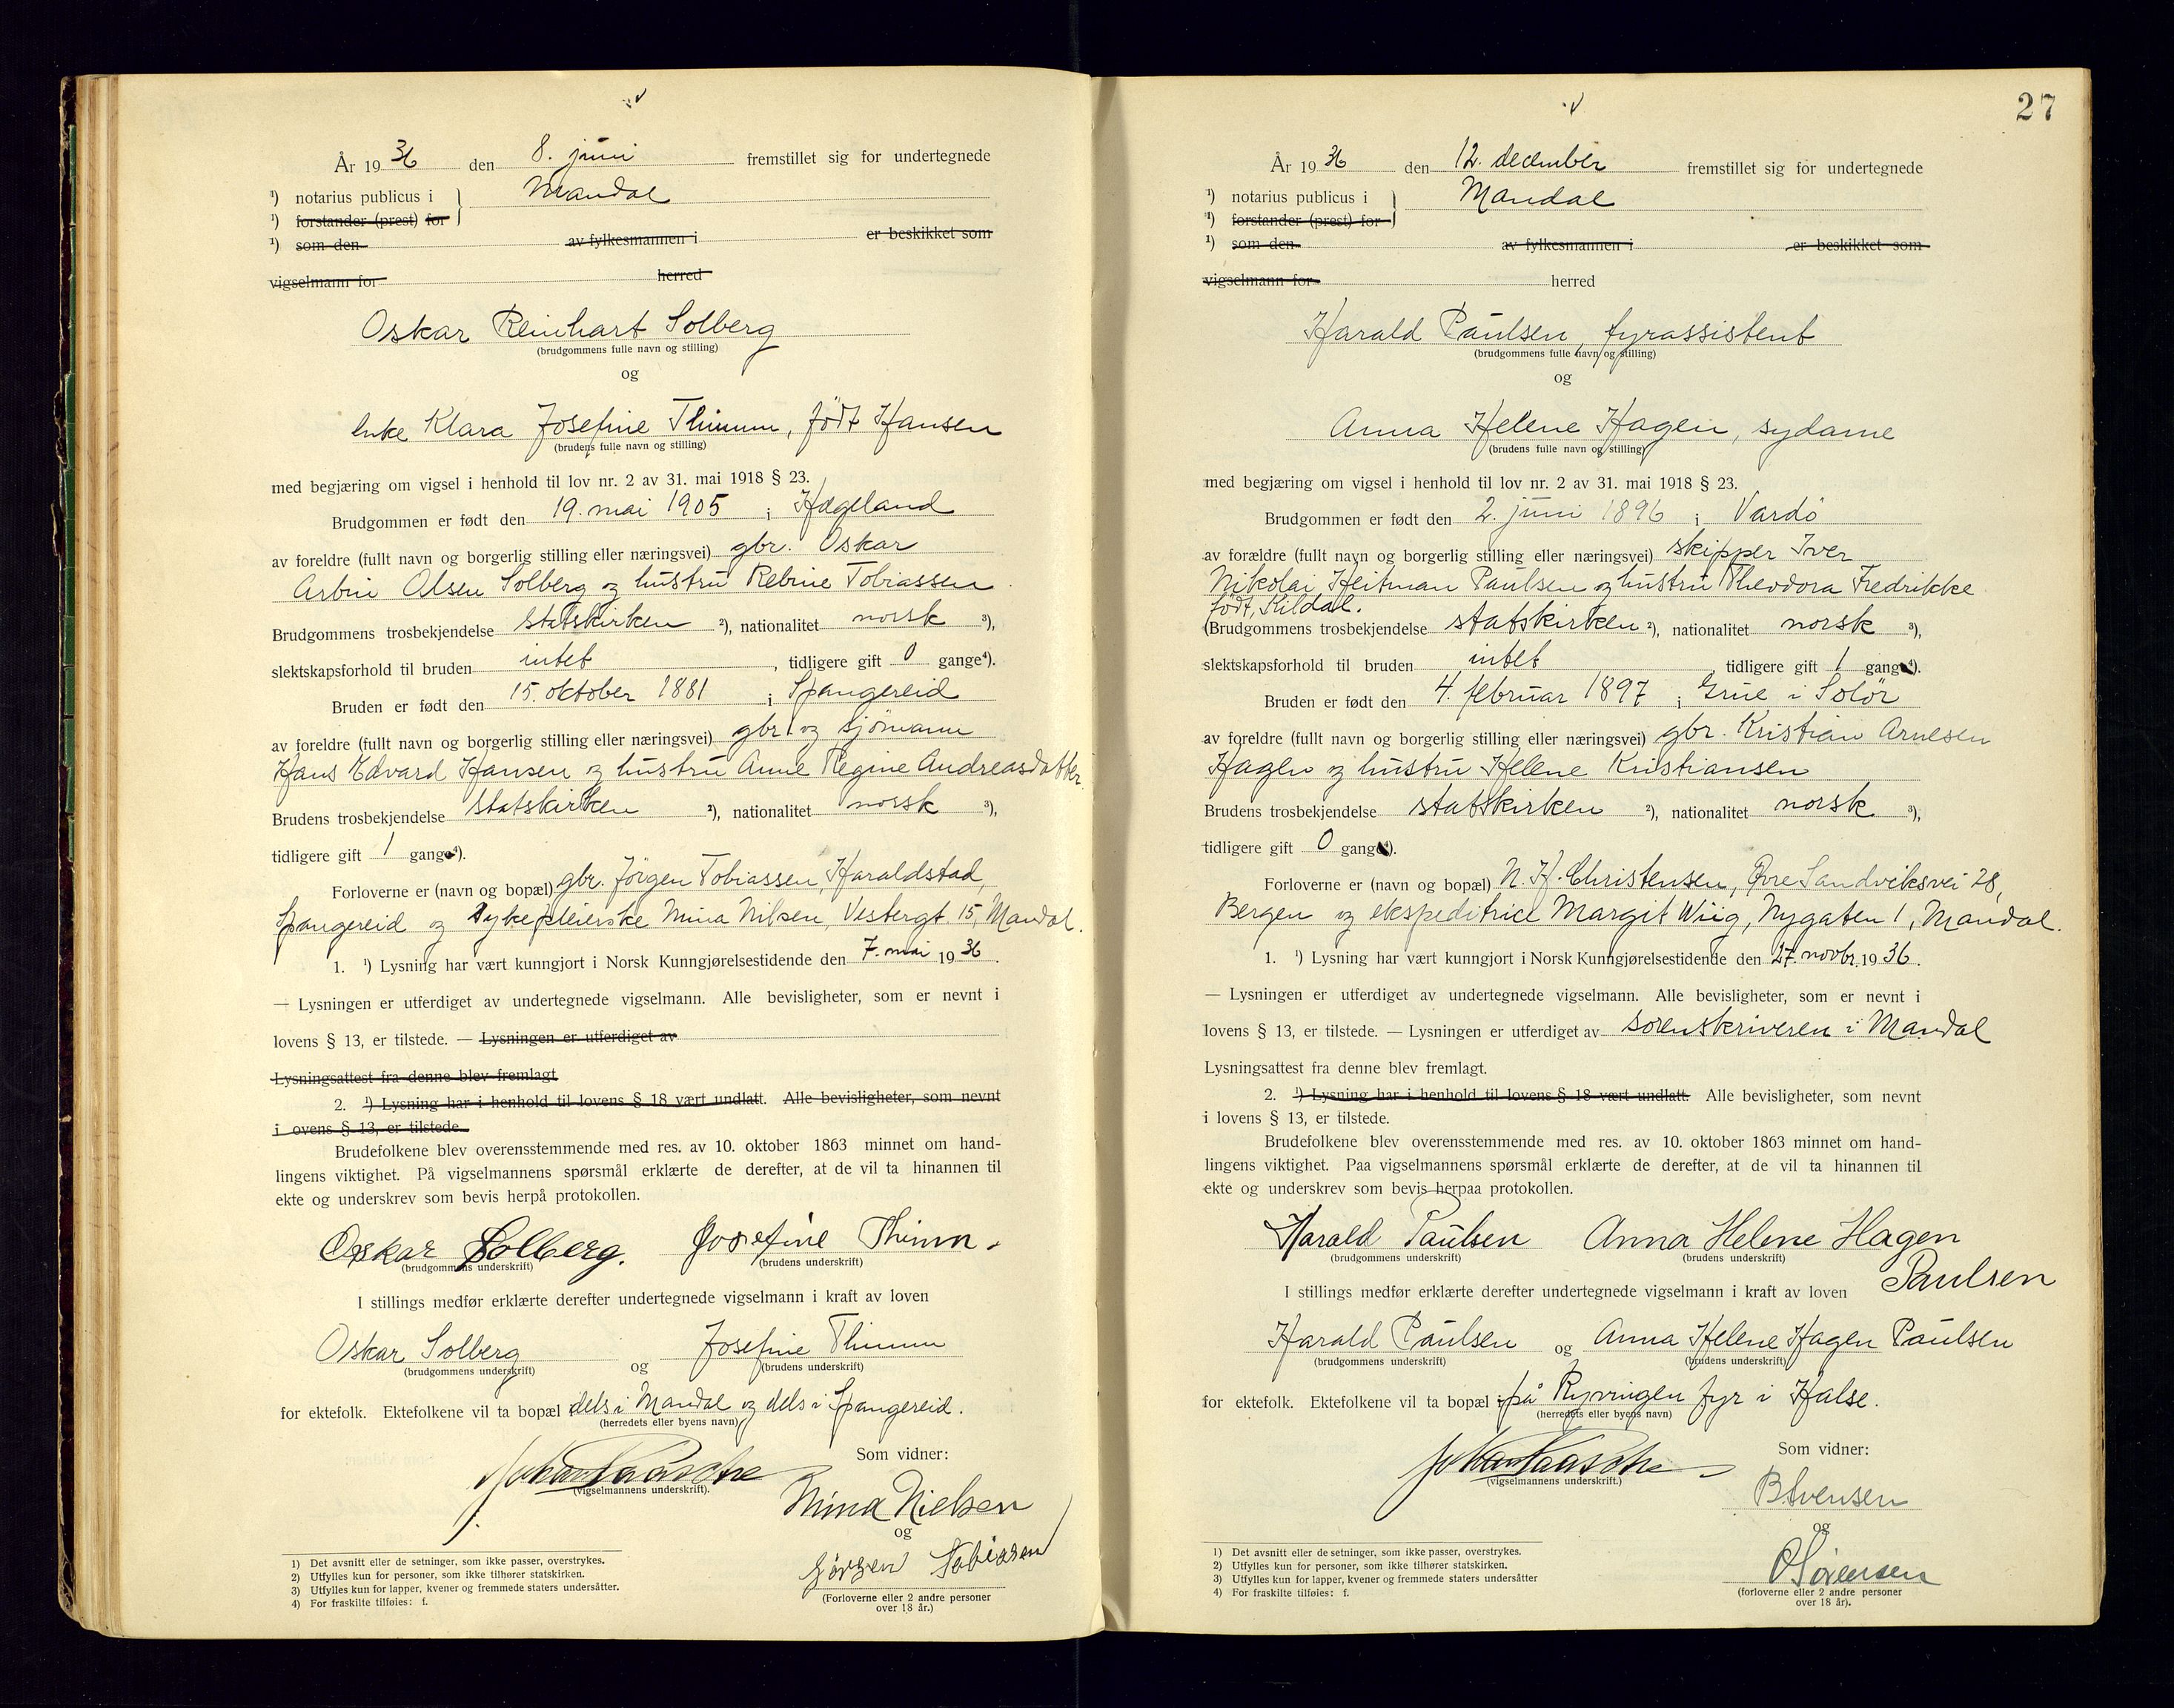 År 19 36 den 8. juni fremstillet sig for undertegnede
¹) notarius publicus i } Mandal
¹) forstander (prest) for
¹) som den av fylkesmannen i er beskikket som
vigselmann for herred
Oskar Reinhart Solberg
(brudgommens fulle navn og stilling)
og
enke Klara Josefine Thimm, født Hansen
(brudens fulle navn og stilling)
med begjæring om vigsel i henhold til lov nr. 2 av 31. mai 1918 § 23.
Brudgommen er født den 19. mai 1905 i Hægeland
av foreldre (fullt navn og borgerlig stilling eller næringsvei) gbr. Oskar
Arbin Olsen Solberg og hustru Rebine Tobiassen
Brudgommens trosbekjendelse statskirken ²), nationalitet norsk ³),
slektskapsforhold til bruden intet, tidligere gift 0 gange⁴).
Bruden er født den 15. oktober 1881 i Spangereid
av foreldre (fullt navn og borgerlig stilling eller næringsvei) gbr. og sjömann
Hans Edvard Hansen og hustru Anne Regine Andreasdatter.
Brudens trosbekjendelse statskirken ²), nationalitet norsk ³),
tidligere gift 1 gange⁴).
Forloverne er (navn og bopæl) gbr. Jörgen Tobiassen, Haraldstad,
Spangereid og sykepleierske Mina Nilsen, Vestergt. 15, Mandal.
1. ¹) Lysning har vært kunngjort i Norsk Kunngjørelsestidende den 7. mai 19 36.
— Lysningen er utferdiget av undertegnede vigselmann. Alle bevisligheter, som er nevnt i
lovens § 13, er tilstede. — Lysningen er utferdiget av
Lysningsattest fra denne blev fremlagt
2. ¹) Lysning har i henhold til lovens § 18 vært undlatt. Alle bevisligheter, som nevnt
i ovens § 13, er tilstede.
Brudefolkene blev overensstemmende med res. av 10. oktober 1863 minnet om hand-
lingens viktighet. På vigselmannens spørsmål erklærte de derefter, at de vil ta hinannen til
ekte og underskrev som bevis herpå protokollen.
Oskar Solberg. Josefine Thimm.
(brudgommens underskrift) (brudens underskrift)
I stillings medfør erklærte derefter undertegnede vigselmann i kraft av loven
Oskar Solberg og Josefine Thimm
(brudgommens underskrift) (brudens underskrift)
for ektefolk. Ektefolkene vil ta bopæl dels i Mandal og dels i Spangereid.
(herredets eller byens navn)
Som vidner:
(vigselmannens underskrift).
Mina Nielsen
og
Jörgen Tobiasen
(Forloverne eller 2 andre personer
over 18 år.)
1) Det avsnitt eller de setninger, som ikke passer, overstrykes.
2) Utfylles kun for personer, som ikke tilhører statskirken.
3) Utfylles kun for lapper, kvener og fremmede staters undersåtter.
4) For fraskilte tilføies: f.
27
År 19 36 den 12. december fremstillet sig for undertegnede
¹) notarius publicus i } Mandal
¹) forstander (prest) for
¹) som den av fylkesmannen i er beskikket som
vigselmann for herred
Harald Paulsen, fyrassistent
(brudgommens fulle navn og stilling)
og
Anna Helene Hagen, sydame
(brudens fulle navn og stilling)
med begjæring om vigsel i henhold til lov nr. 2 av 31. mai 1918 § 23.
Brudgommen er født den 2. juni 1896 i Vardö
av forældre (fullt navn og borgerlig stilling eller næringsvei) skipper Iver
Nikolai Heitman Paulsen og hustru Theodora Fredrikke
født, Kildal.
Brudgommens trosbekjendelse statskirken ²), nationalitet norsk ³),
slektskapsforhold til bruden intet tidligere gift 1 gange⁴).
Bruden er født den 4. februar 1897 i Grue i Solör
av foreldre (fullt navn og borgerlig stilling eller næringsvei) gbr. Kristian Arnesen
Hagen og hustru Helene Kristiansen
Brudens trosbekjendelse statskirken ²), nationalitet norsk ³),
tidligere gift 0 gange⁴).
Forloverne er (navn og bopæl) N. H. Christensen, Øvre Sandviksvei 28,
Bergen og ekspeditrice Margit Wiig, Nygaten 1, Mandal.
1. ¹) Lysning har vært kunngjort i Norsk Kunngjørelsestidende den 27. novbr. 19 36.
— Lysningen er utferdiget av undertegnede vigselmann. Alle bevisligheter, som er nevnt i
lovens § 13, er tilstede. — Lysningen er utferdiget av sorenskriveren i Mandal
Lysningsattest fra denne blev fremlagt.
2. ¹) Lysning har i henhold til lovens § 18 vært undlatt. Alle bevisligheter, som nevnt
i lovens § 13, er tilstede.
Brudefolkene blev overensstemmende med res. av 10. oktober 1863 minnet om hand-
lingens viktighet. Paa vigselmannens spørsmål erklærte de derefter, at de vil ta hinannen til
ekte og underskrev som bevis herpaa protokollen.
Harald Paulsen Anna Helene Hagen
(brudgommens underskrift) (brudens underskrift)
Paulsen
I stillings medfør erklærte derefter undertegnede vigselmann i kraft av loven
Harald Paulsen og Anna Helene Hagen Paulsen
(brudgommens underskrift) (brudens underskrift)
for ektefolk. Ektefolkene vil ta bopæl i på Ryvingen fyr i Halse.
(herredets eller byens navn)
Som vidner:
(vigselmannens underskrift.)
B. Svensen
og
O Sörensen
(forloverne eller 2 andre personer
over 18 år).
1) Det avsnitt eller de setninger, som ikke passer, overstrykes.
2) Utfylles kun for personer, som ikke tilhører statskirken.
3) Utfylles kun for lapper, kvener og fremmede staters undersåtter
4) For fraskilte tilføies: f.